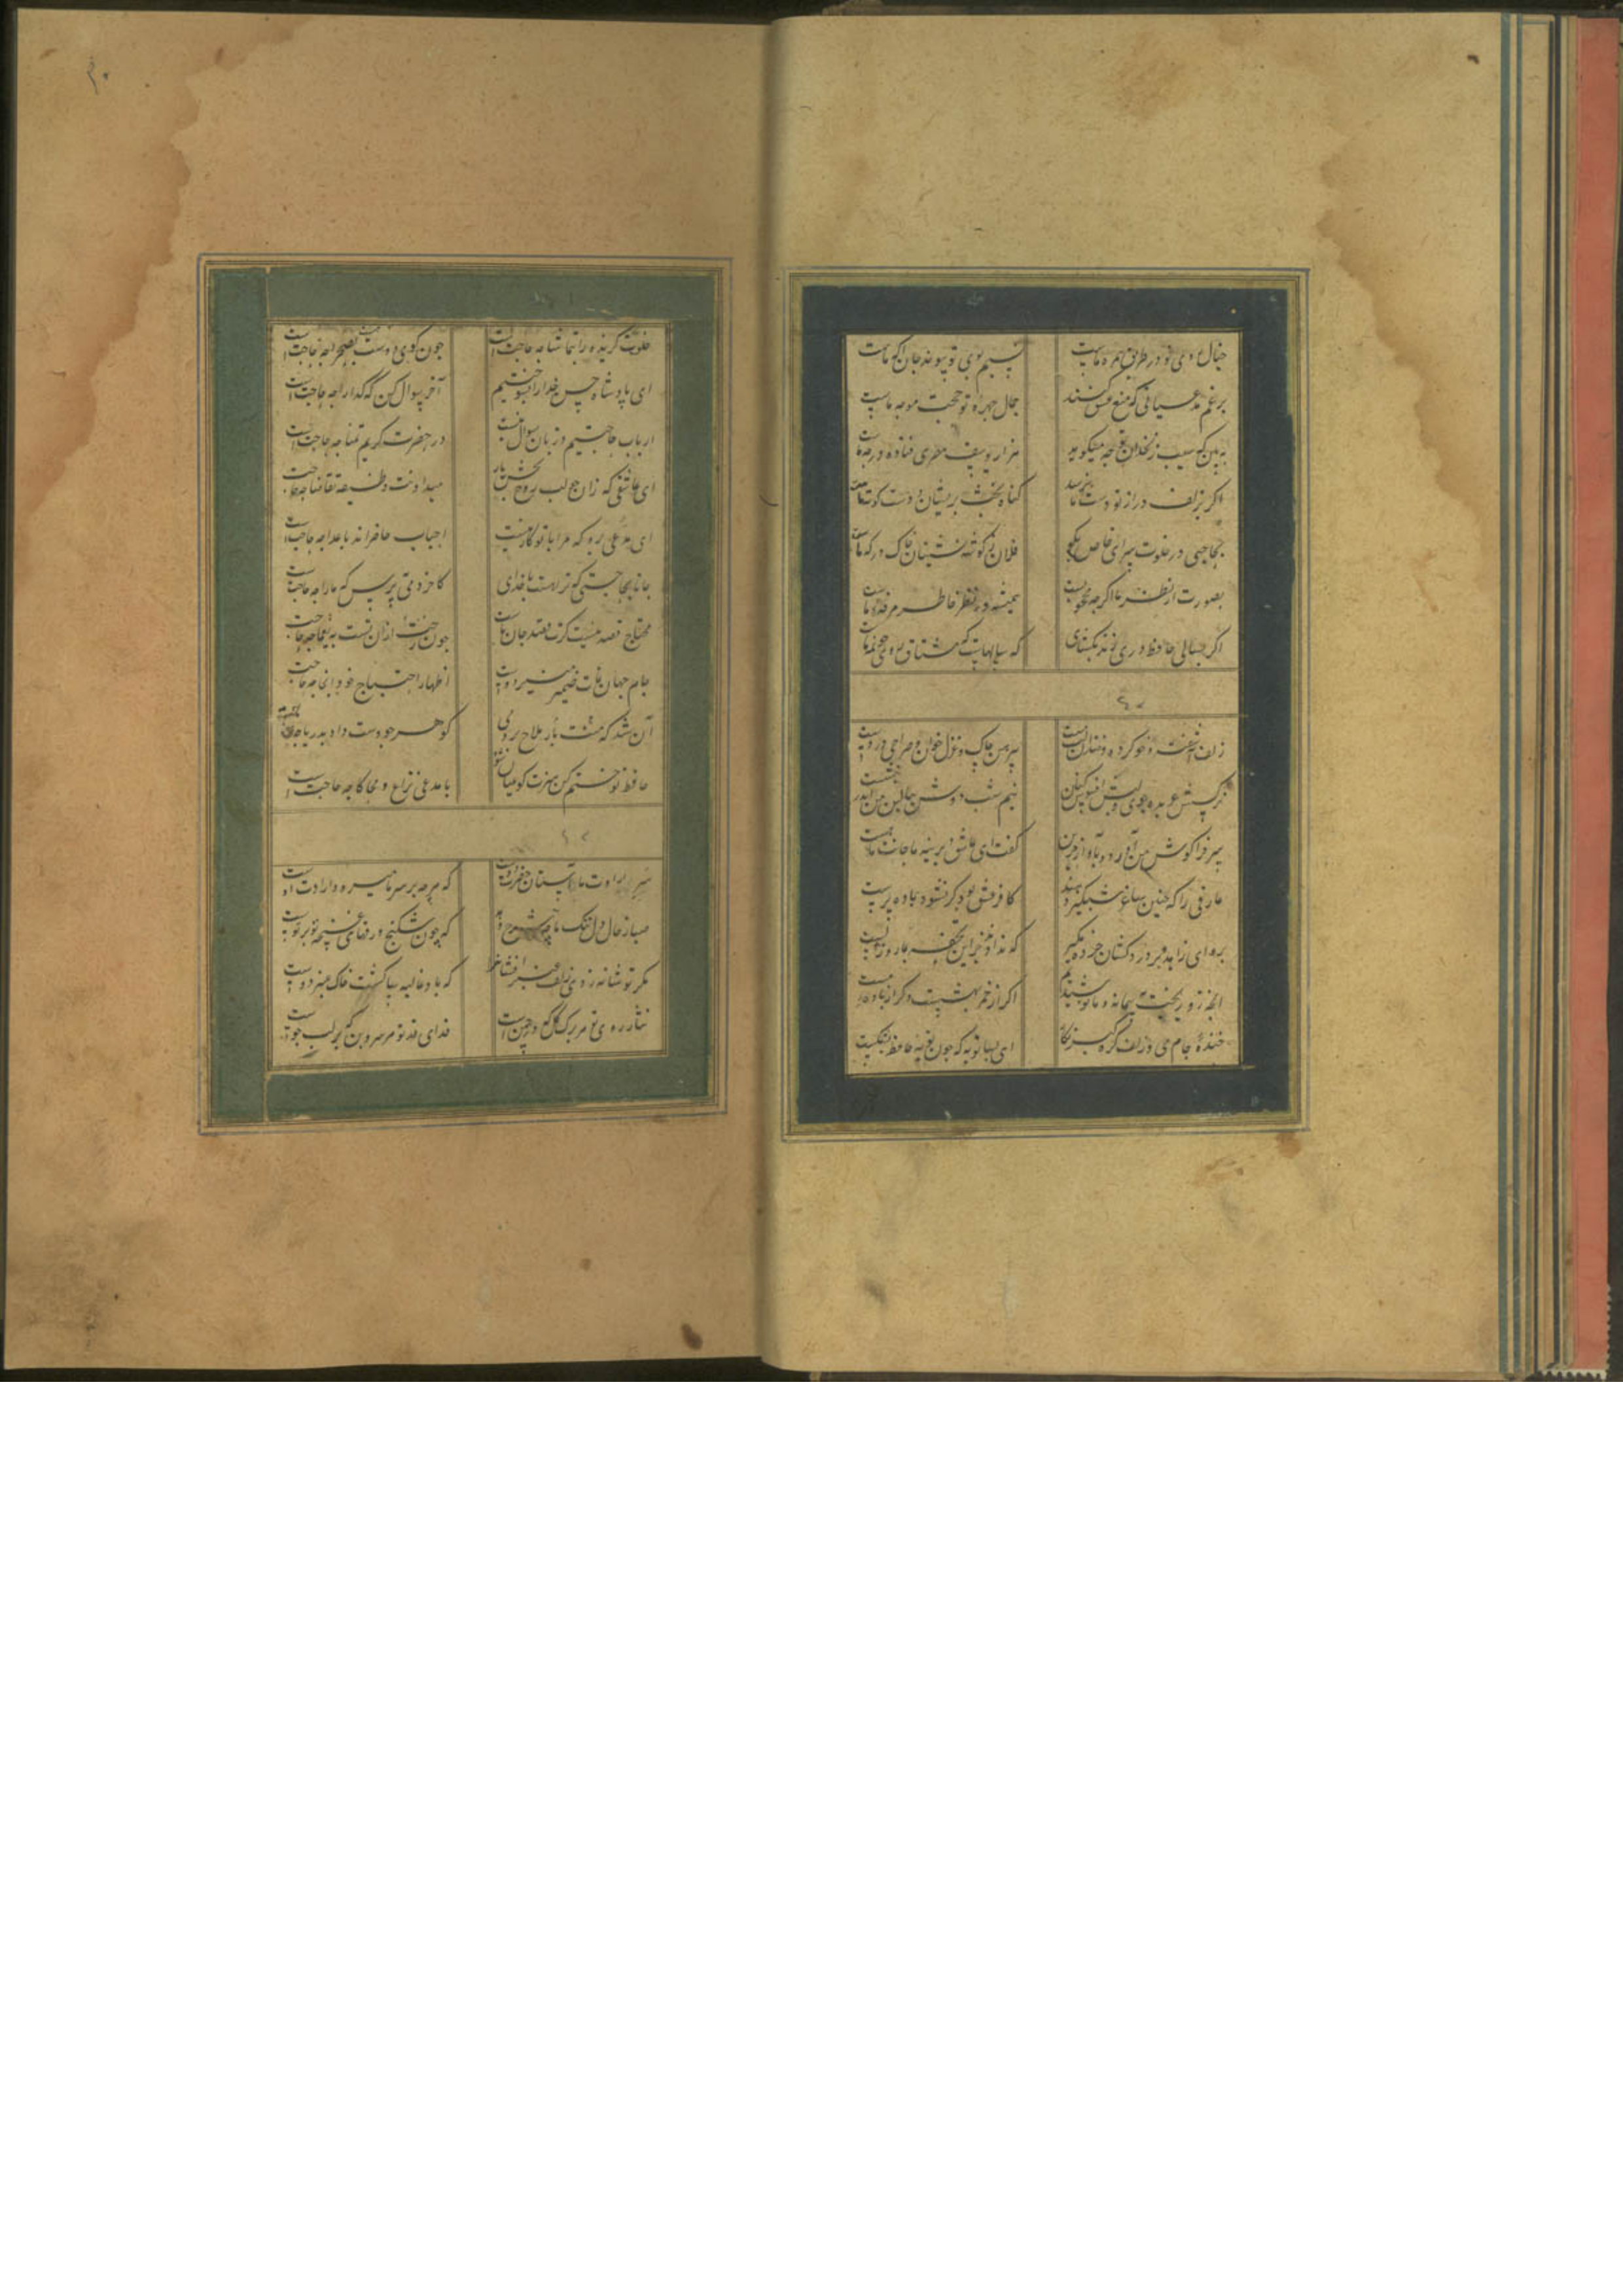 خیال روی تو در طریق همره ماست نسیم موی تو پیوند جان آگه ماست
برغم مدعیانی که منع عشق کنند جمال چهرهٔ تو حجت موجه ماست
ببین که سیب زنخدان تو چه میکوید هزار یوسف مصری فتاده در چه ماست
اکر بزلف دراز تو دست ما نرسد کناه بخت پریشان و دست کوته ماست
بحاجبی در خلوت سرای خاص بکو فلان ز کوشه نشینان خاک درکه ماست
بصورت از نظر ما اکرچه محجوبست همیشه در نظر خاطر مرفه ماست
اکر بسالی حافظ دری زند بکشای که سالهاست که مشتاق روی چو مه ماست
زلف آشفته و خوی کرده و خندان لب مست پیرهن چاک و غزل خوان و صراحی در دست
نرکسش عربده جوی و لبش افسوس کنان نیم شب دوش ببالین من آمد بنشست
سر فرا کوش من آورد و بآواز حزین کفت ای عاشق دیرینه ما خوابت هست
عارفی را که چنین ساغر شبکیر دهند کافر عشق بود کر نشود باده پرست
برو ای زاهد و بر دردکشان خرده مکیر که ندادند جز این تحفه بما روز الست
آنچه او ریخت به پیمانه ما نوشیدیم اکر از خمر بهشتست و کر از باده مست
خندهٔ جام می و زلف کره کیر نکار ای بسا توبه که چون توبهٔ حافظ بشکست
خلوت کزیده را بتماشا چه حاجت است چون کوی دوست هست بصحرا چه حاجت است
ای پادشاه حسن خدا را بسوختیم آخر سوال کن که کدا را چه حاجت است
ارباب حاجتیم و زبان سوال نیست در حضرت کریم تمنا چه حاجت است
ای عاشق کدا چو لب روح بخش یار میداندت وظیفه تقاضا چه حاجت
ای مدعی برو که مرا با تو کار نیست احباب حاضراند باعدا چه حاجت است
جانا بحاجتی که ترا هست با خدای کاخر دمی بپرس که ما را چه حاجت است
محتاج قصه نیست کرت قصد جان ماست چون رخت از آن تست به یغما چه حاجت
جام جهان نماست ضمیر منیر دوست اظهار احتیاج خود آنجا چه حاجت
آن شد که منت بار ملاح بردمی کوهر چو دست داد بدریا چه حاجت
حافظ تو ختم کن که هنر خود عیان شود با مدعی نزاع و محاکا چه حاجت است
سر ارادت ما و آستان حضرت دوست که هرچه بر سر ما میرود ارادت اوست
صبا ز حال دل تنک ما چه شرح دهد که چون شکنج ورقهای غنچه تو بر توست
مکر تو شانه زدی زلف عنبر افشان را که باد غالیه سا کشت و خاک عنبر بوست
نثار روی تو هر برک کل که در چمن است فدای قد تو هر سرو بن که بر لب جوست